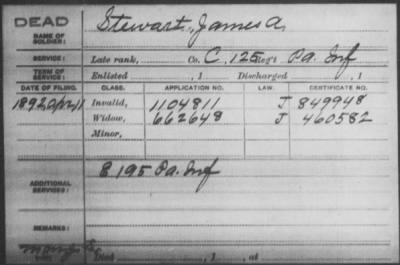 DEAD
NAME OF SOLDIER: Stewart, James A.
SERVICE: Late rank, Co. C, 125 Reg't Pa. Inf
TERM OF SERVICE: Enlisted , 1 Discharged , 1
DATE OF FILING. CLASS. APPLICATION NO. LAW. CERTIFICATE NO.
1892, Apr 11 Invalid, 1104811 J 849948
Widow, 662648 J 460582
Minor,
ADDITIONAL SERVICES: E 195 Pa. Inf
REMARKS:
Died , 1 , at